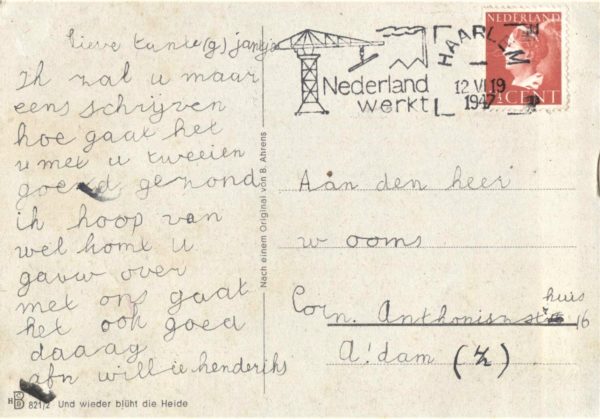 lieve tante(g) jansje
Ik zal u maar
eens schrijven
hoe gaat het
u met u tweeien
goed gezond
ik hoop van
wel komt u
gauw over
met ons gaat
het ook goed
daaag
afn willie henderiks
HB 821/2 Und wieder blüht die Heide
Nach einem Original von B. Ahrens
Nederland
werkt
HAARLEM
12 VI 19
1947
NEDERLAND
CENT
Aan den heer
w ooms
Corn. Anthonisznstr
huis
16
A'dam (Z)